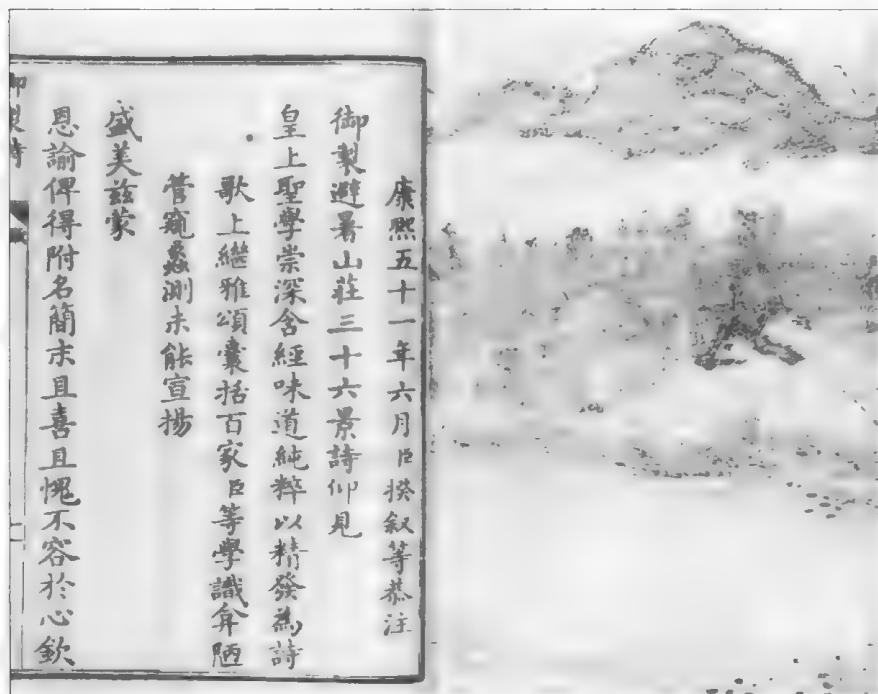 康熙五十一年六月臣揆叙等恭注
御製避暑山莊三十六景詩仰見
皇上聖學崇深含經味道純粹以精發為詩
歌上繼雅頌囊括百家臣等學識弇陋
管窺蠡測未能宣揚
盛美兹蒙
恩諭俾得附名簡末且喜且愧不容於心欽
御製詩